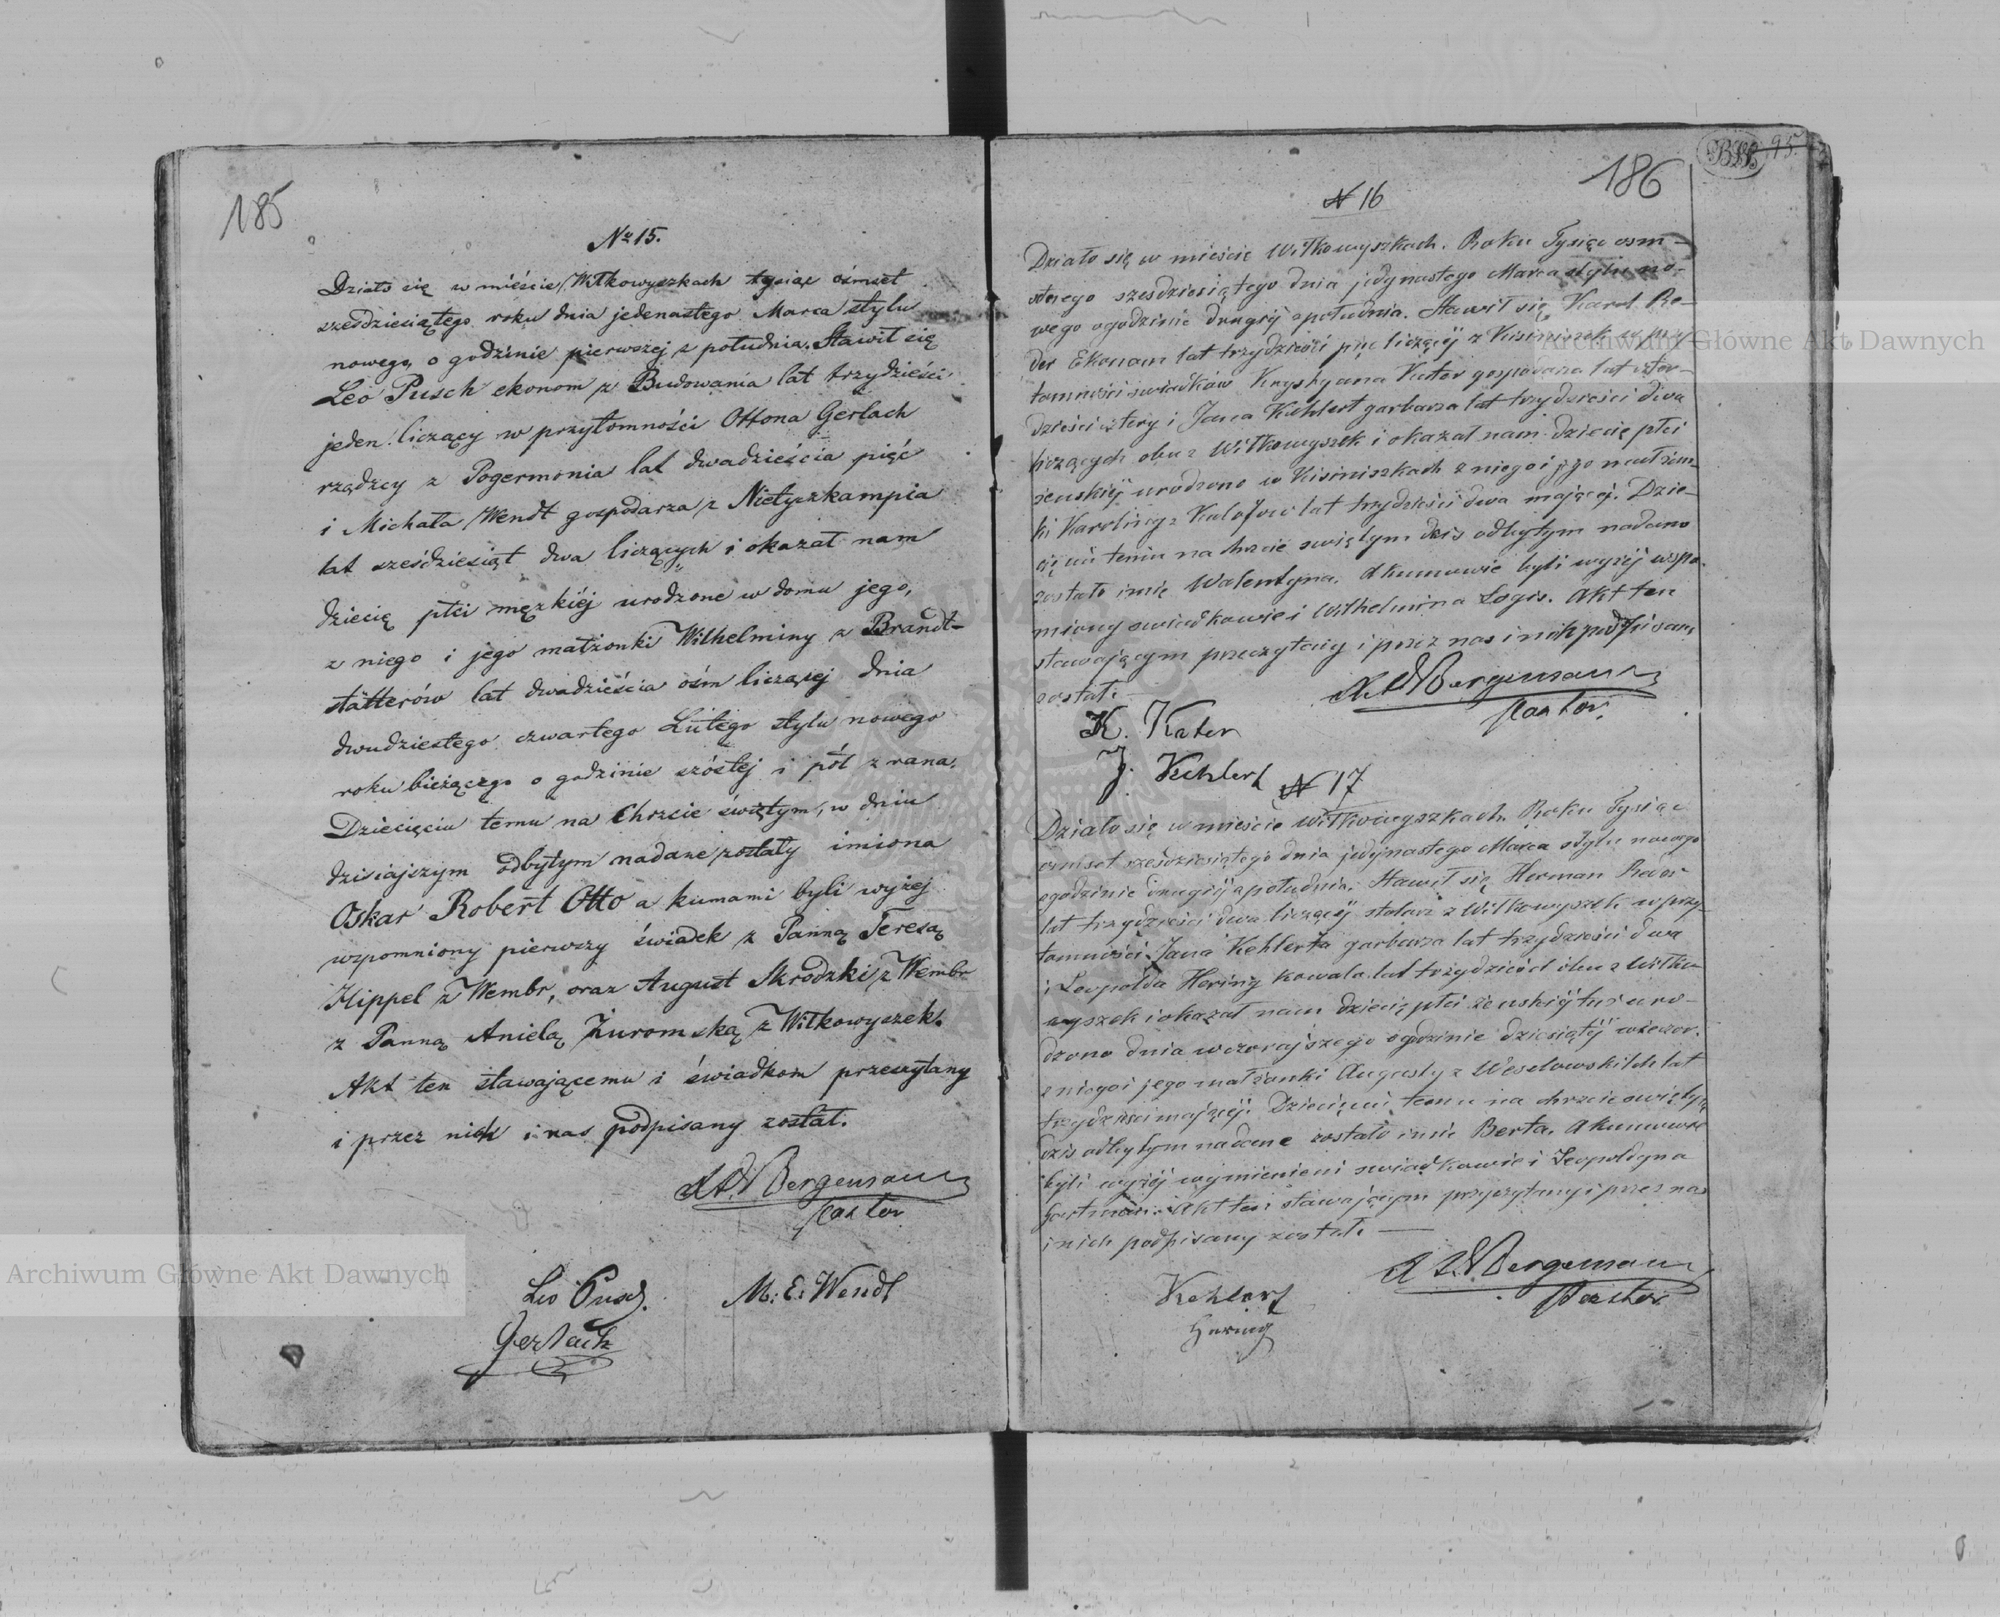 185
Nr 15.
Działo się w mieście Wiłkowyszkach tysiąc ośmset
sześdziesiątego roku dnia jedenastego Marca stylu
nowego, o godzinie pierwszej z południa. Stawił się
Leo Pusch ekonom z Budowania lat trzydzieści
jeden liczący w przytomności Ottona Gerlach
rządzcy z Pogermonia lat dwadzieścia pięć
i Michała Wendt gospodarza z Nietyszkampia
lat sześdziesiąt dwa liczących i okazał nam
dziecię płci męzkiéj urodzone w domu jego,
z niego i jego małżonki Wilhelminy z Brandt-
städterów lat dwadzieścia óśm liczącej dnia
dwudziestego czwartego Lutego stylu nowego
roku bieżącego o godzinie szóstej i pół z rana.
Dziecięciu temu na Chrzcie świętym, w dniu
dzisiajszym odbytym nadane zostały imiona
Oskar Robert Otto a kumami byli wyżej
wzpomniony pierwszy świadek z Panną Teresą
Hippel z Wembr, oraz August Skrodzki z Wembr
z Panną Anielą Żuromską z Wiłkowyszek.
Akt ten stawającemu i świadkom przeczytany
i przez nich i nas podpisany został.
Bergemann
Pastor
Leo Pusch.
M: E: Wendt
Gerlach
186
95.
N 16
Działo się w mieście Wiłkowyszkach. Roku Tysiąc osm-
setnego szesdziesiątego dnia jedynastego Marca stylu no-
wego ogodzinie drugiéj społudnia. Stawił się, Karol Re-
der Ekonom lat trzydzieści pięć liczącéj z Kisiniszek w przy
tomności swiadków Krystyana Kater gospodarza lat czter-
dzieści cztery i Jana Kehlert garbarza lat trzydzieści dwa
liczących obu z Wiłkowyszek i okazał nam dziecię płci
żeuskiéj urodzone w Kisiniszkach z niego i jego małżon-
ki Karoliny z lat trzydzieści dwa mającéj. Dzie-
cięciu temu na chrzcie swiętym dzis odbytym nadano
zostało imię Walentyna. Akumowie byli wyżéj wspo-
miony swiadkowie i Wilhelmina Logis. Akt ten
stawającym przeczytany i przez nas i nich podpisany
został.
Bergemann
Pastor.
K. Kater
J. Kehlert
N 17
Działo się w mieście Wiłkowyszkach. Roku Tysiąc
osmset sześdziesiątego dnia jedynastego Marca stylu nowego
ogodzinie drugiéj społudnia. Stawił się Herman Reder
lat trzydzieści dwa liczącéj stolarz z Wilkowyszek w przy-
tomności Jana Kehlerta garbarza lat trzydzieści dwa
i Leopolda Hering kowala lat trzydzieści obu z Wiłko-
wyszek i okazał nam dziecię płci żeuskiéj tu uro-
dzono dnia wczorajszego ogodzinie dziesiątéj wieczor.
z niego i jego małżonki Augusty z Wesołowskich lat
trzydzieści mającéj. Dziecięciu temu na chrzcie swiętym
dzis odbytym nadane zostało imie Berta. Akumowie
byli wyżéj wymienieni swiadkowie i Leopoldyna
Akt ten stawającym przyczytany i przez nas
i nich podpisany został.
Bergemann
Pastor
Kehlert
Hering
Archiwum Główne Akt Dawnych
Archiwum Główne Akt Dawnych